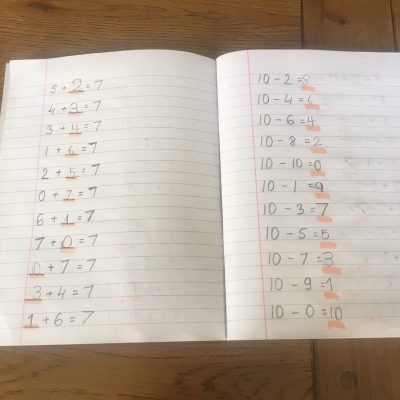 5 + 2 = 7
4 + 3 = 7
3 + 4 = 7
1 + 6 = 7
2 + 5 = 7
0 + 7 = 7
6 + 1 = 7
7 + 0 = 7
0 + 7 = 7
3 + 4 = 7
1 + 6 = 7
10 - 2 = 8
10 - 4 = 6
10 - 6 = 4
10 - 8 = 2
10 - 10 = 0
10 - 1 = 9
10 - 3 = 7
10 - 5 = 5
10 - 7 = 3
10 - 9 = 1
10 - 0 = 10